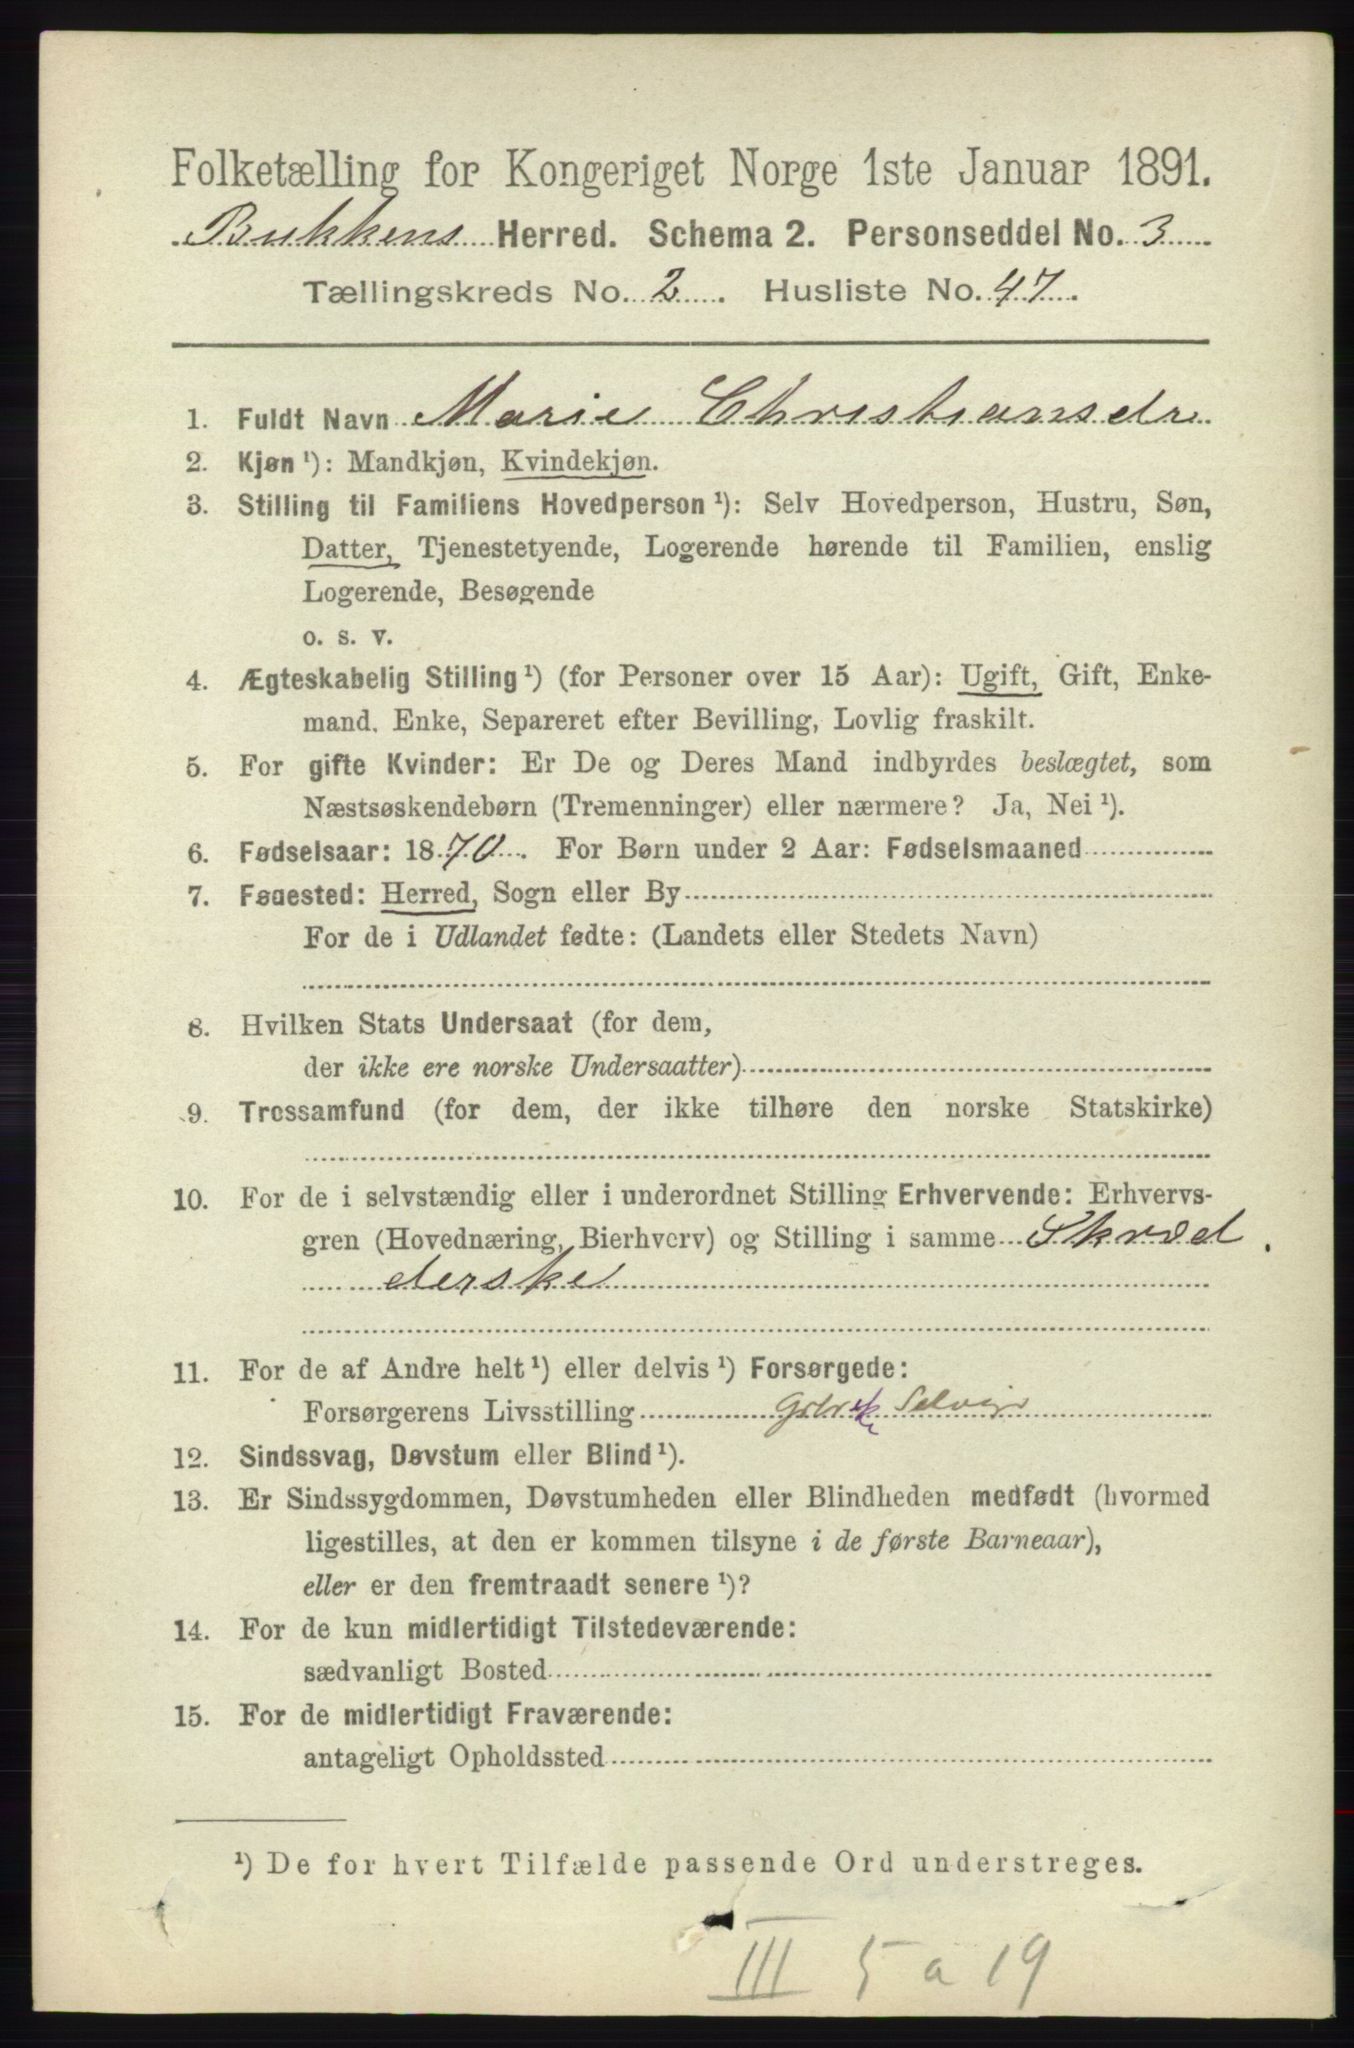 Folketælling for Kongeriget Norge 1ste Januar 1891.
Bukkens Herred. Schema 2. Personseddel No. 3
Tællingskreds No. 2. Husliste No. 47.
1. Fuldt Navn Marie Christiansdr.
2. Kjøn ¹): Mandkjøn, Kvindekjøn.
3. Stilling til Familiens Hovedperson ¹): Selv Hovedperson, Hustru, Søn,
Datter, Tjenestetyende, Logerende hørende til Familien, enslig
Logerende, Besøgende
o. s. v.
4. Ægteskabelig Stilling ¹) (for Personer over 15 Aar): Ugift, Gift, Enke-
mand, Enke, Separeret efter Bevilling, Lovlig fraskilt.
5. For gifte Kvinder: Er De og Deres Mand indbyrdes beslægtet, som
Næstsøskendebørn (Tremenninger) eller nærmere? Ja, Nei ¹).
6. Fødselsaar: 1870. For Børn under 2 Aar: Fødselsmaaned
7. Fødested: Herred, Sogn eller By
For de i Udlandet fødte: (Landets eller Stedets Navn)
8. Hvilken Stats Undersaat (for dem,
der ikke ere norske Undersaatter)
9. Trossamfund (for dem, der ikke tilhøre den norske Statskirke)
10. For de i selvstændig eller i underordnet Stilling Erhvervende: Erhvervs-
gren (Hovednæring, Bierhverv) og Stilling i samme Skræd
derske
11. For de af Andre helt ¹) eller delvis ¹) Forsørgede:
Forsørgerens Livsstilling
12. Sindssvag, Døvstum eller Blind ¹).
13. Er Sindssygdommen, Døvstumheden eller Blindheden medfødt (hvormed
ligestilles, at den er kommen tilsyne i de første Barneaar),
eller er den fremtraadt senere ¹)?
14. For de kun midlertidigt Tilstedeværende:
sædvanligt Bosted
15. For de midlertidigt Fraværende:
antageligt Opholdssted
¹) De for hvert Tilfælde passende Ord understreges.
III 5 a 19